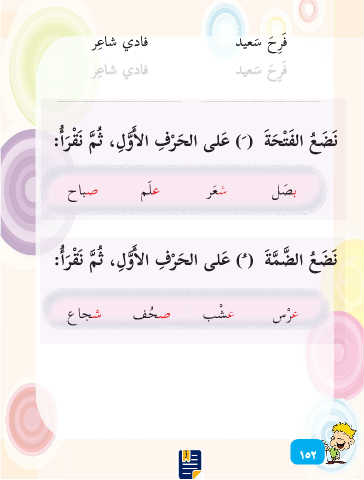 فَرِحَ سَعيد فادي شاعِر
فَرِحَ سَعيد فادي شاعِر
نَضَعُ الفَتْحَةَ (ـَ) عَلى الحَرْفِ الأَوَّلِ، ثُمَّ نَقْرَأُ:
بصَل شعَر علَم صباح
نَضَعُ الضَّمَّةَ (ـُ) عَلى الحَرْفِ الأَوَّلِ، ثُمَّ نَقْرَأُ:
عرْس عشْب صحُف شجاع
١٥٢